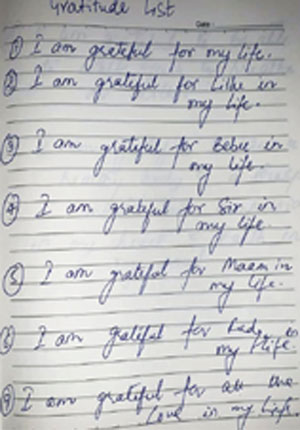 Gratitude List
Date :
① I am grateful for my life.
② I am grateful for in
my life.
③ I am grateful for Bebu in
my life.
④ I am grateful for Sir in
my life.
⑤ I am grateful for Maam in
my life.
⑥ I am grateful for in
my life.
⑦ I am grateful for all the
love in my life